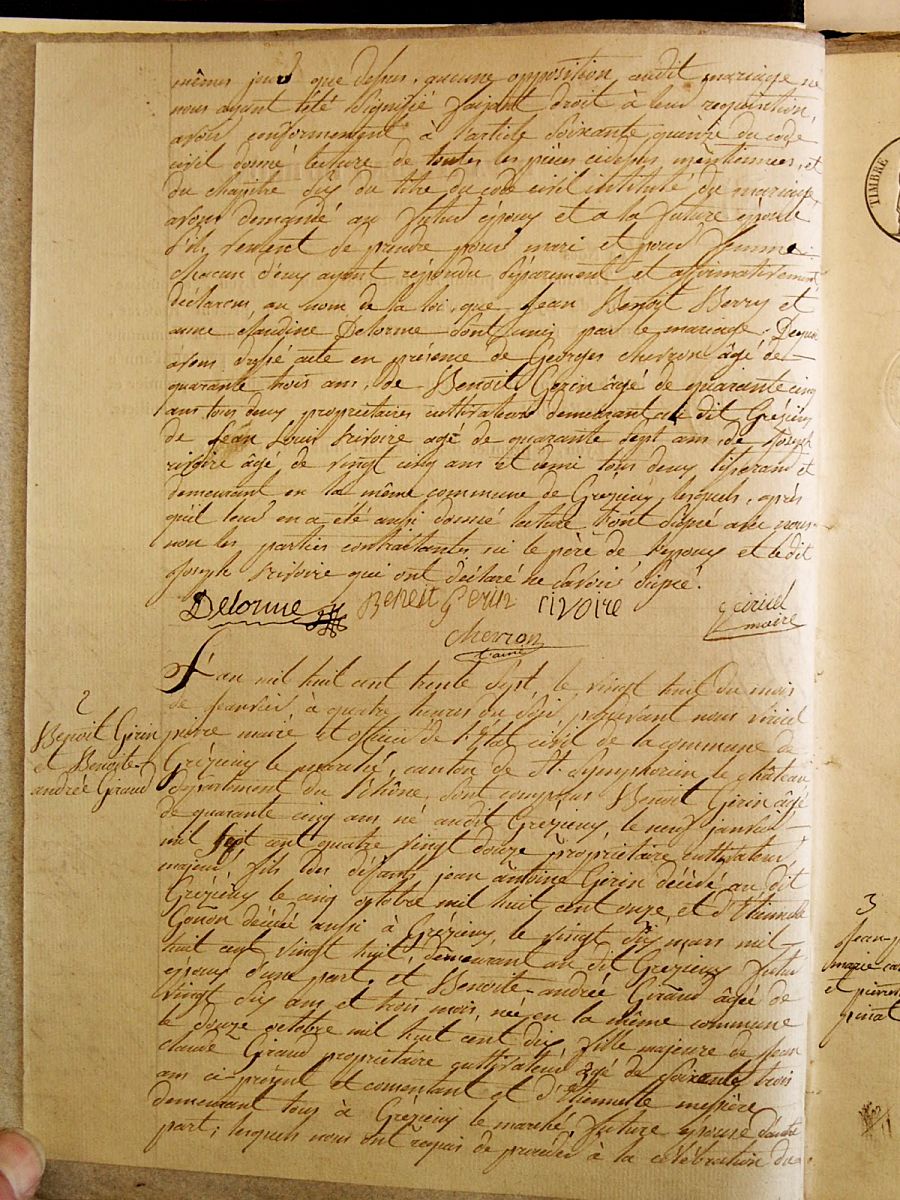 mêmes jour que dessus, aucune opposition audit mariage ne
nous ayant été signifié faisant droit à leur requisition,
avons conformement à l'article soixante quinze du code
civil donné lecture de toutes les pièces cidessus mentionnées, et
du chapitre six du titre du code civil intitulé du mariage,
avons demandé au futur époux et a la future épouse
s'ils veulent se prendre pour mari et pour femme
chacun d'eux ayant répondu séparement et affirmativement
déclarons au nom de la loi, que Jean Benoit Berry et
anne claudine Delorme sont unis par le mariage; De quoi
avons dressé acte en présence de Georges chevron âgé de
quarante trois ans, de Benoit Gerin âgé de quarante cinq
ans tous deux propriétaires cultivateurs demeurant au dit Grézieu
de Jean Louis rivoire agé de quarante sept ans, de Joseph
rivoire âgé de vingt cinq ans et demi tous deux tisserand et
demeurant en la même commune de Grézieu, lesquels, après
qu'il leur en a été aussi donné lecture l'ont signé avec nous
non les parties contractantes ni le père de l'epoux et ledit
Joseph rivoire qui ont déclaré ne savoir signé.
Delorme Benoit Gerin rivoire
maire
chevron
l'ainé
L'an mil huit cent trente sept, le vingt huit du mois
de janvier à quatre heures du soir, pardevant nous
pierre maire et officier de l'Etat civil de la commune de
Grézieu le marché, canton de St. Symphorien le château
département du Rhône, sont comparus Benoit Girin âgé
de quarante cinq ans né audit Grézieu, le neuf janvier
mil sept cent quatre vingt douze propriétaire cultivateur,
majeur fils des défunts jean antoine Girin décédé au dit
Grezieu le cinq octobre mil huit cent onze et d'Etiennette
Gonon décédée aussi à Grézieu, le vingt six mars mil
huit cent vingt huit, demeurant au dit Grézieu futur
époux d'une part, et Benoite-andrée Giraud âgée de
vingt six ans et trois mois, née en la même commune
le douze octobre mil huit cent dix fille majeure de Jean
claude Giraud propriétaire cultivateur âgé de soixante trois
ans ci-présent et consentant et d'Etiennette
demeurant tous à Grézieu le marché, future epouse d'autre
part; lesquels nous ont requis de procéder à la célébration du
2
Benoit Girin
et Benoite
andrée Giraud
TIMBRE
3
Jean
marie
et pierre